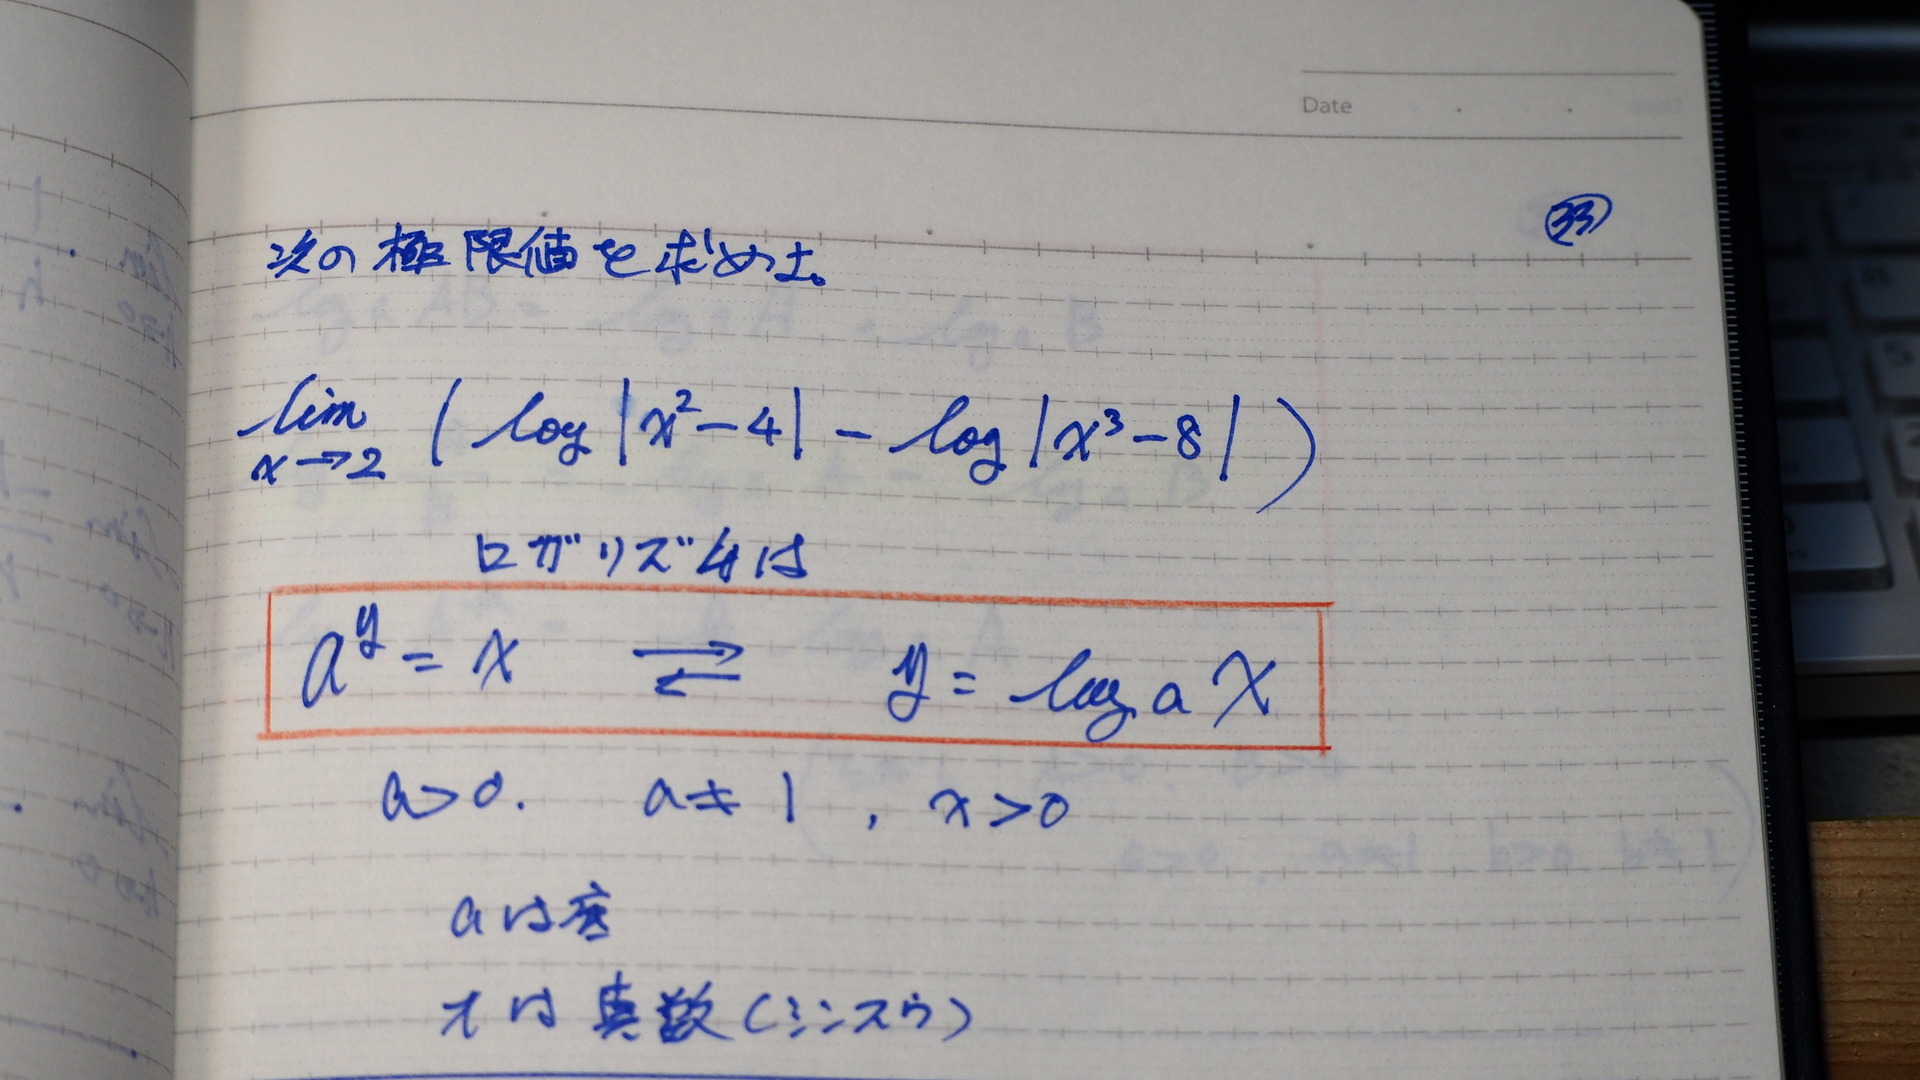 Date
33
次の極限値を求めよ。
lim x→2 ( log|x²-4| - log|x³-8| )
ロガリズムは
a^y = x ⇄ y = log a x
a>0. a≠1, x>0
aは底
xは真数(シンスウ)